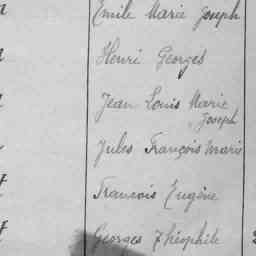 Emile Marie Joseph
Henri Georges
Jean Louis Marie
Joseph
Jules François Marie
Francois Eugène
Georges Théophile